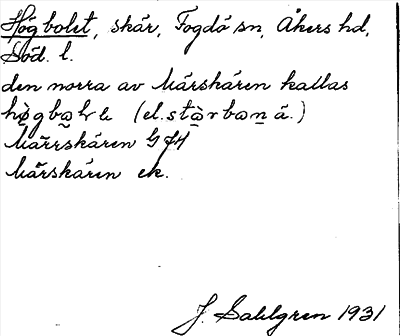 Högbolet, skär, Fogdö sn, Åkers hd,
Söd. l.
den norra av Mårskären kallas
(el. stòrbonä.)
Mårrskären GJH
Mårskären ek.
J. Sahlgren 1931